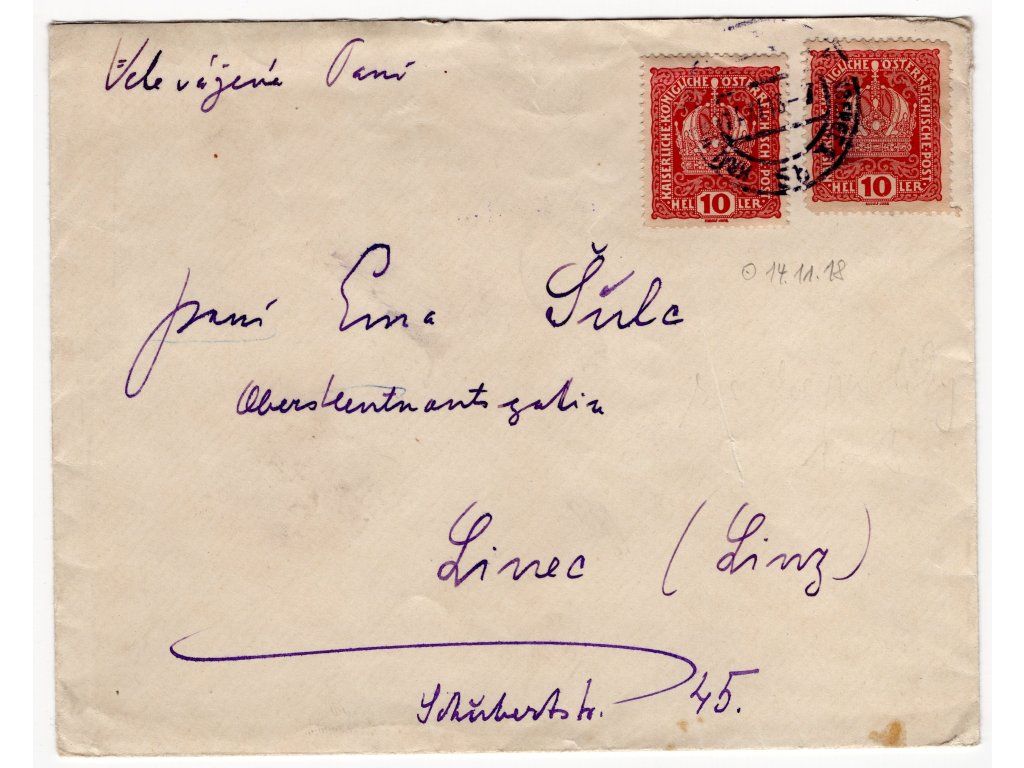 Vele vážená Paní
KAISERLICHE KÖNIGLICHE ÖSTERREICHISCHE POST
HEL 10 LER
KAISERLICHE KÖNIGLICHE ÖSTERREICHISCHE POST
HEL 10 LER
14.11.18
paní Ema Šulc
Oberstleutnantsgatin
Linec (Linz)
Schubertstr. 45.